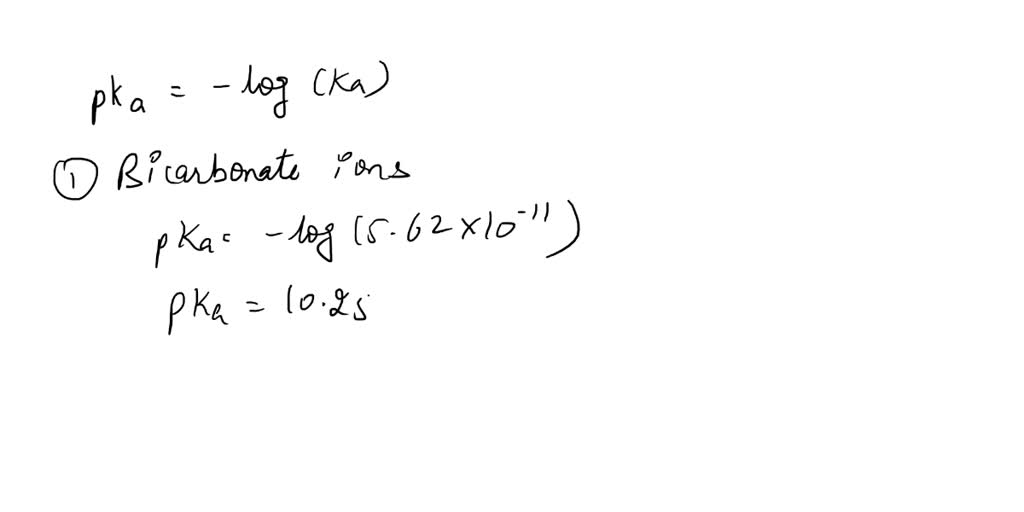 pka = -log (Ka)
① Bicarbonate ions
pKa = -log (5.62 x 10⁻¹¹)
pKa = 10.25